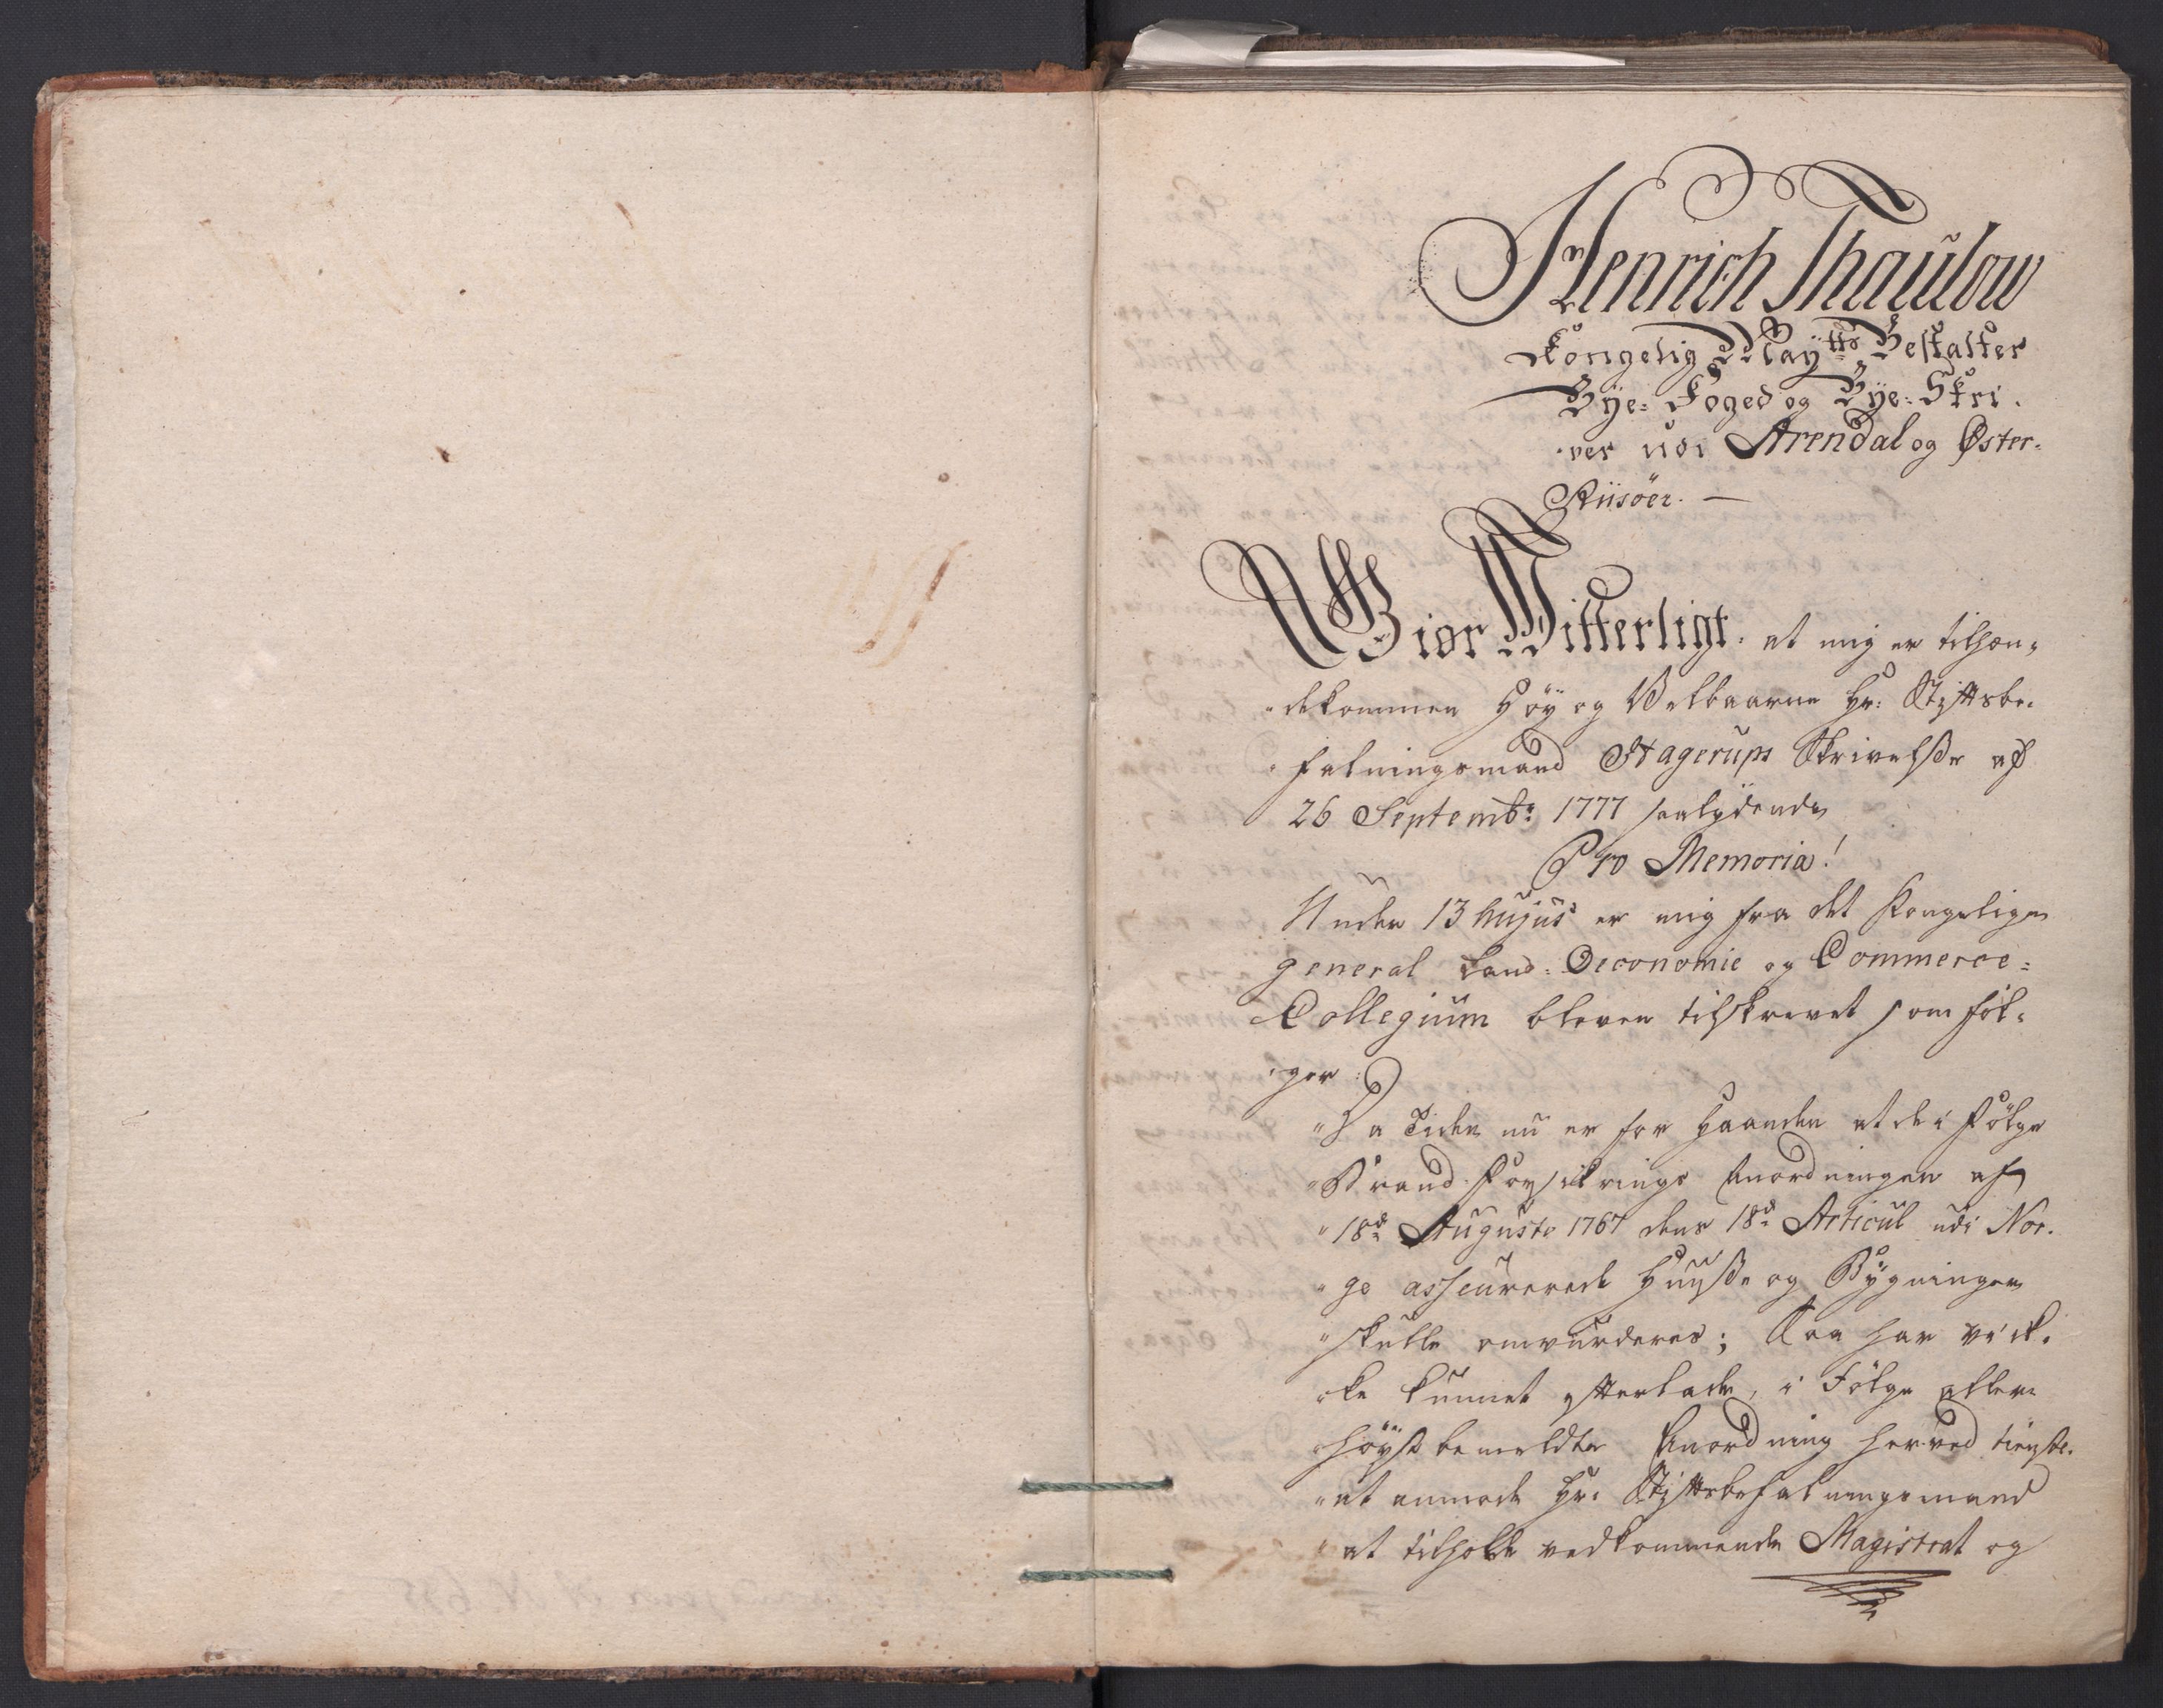 Henrich Thaulow
Kongelig Mayᵗᵗˢ Bestalter
Bÿe-Foged og Bÿe-Skri-
-ver udi Arendal og Øster-
Riisöer. —
Giör Witterligt, at mig er tilhen-
-dekommen Höy og Velbaarne Hr: Stiftsbe-
-falningsmand Hagerups Skrivelße af
26 Septembr: 1777 saalydende
Pro Memoria!
Under 13 hujus er mig fra det Kongelige
general Land-Oeconomie og Commerce-
Collegium bleven tilskrevet som föl-
-ger:
"Da Tiden nu er for Haanden at de i Fölge
"Brand-Forsikrings Anordningen af
"18de Auguste 1767 dens 18de Articul udi Nor-
"ge asseurerede Huuße og Bÿgninger
"skulle omvurderes; Saa har vi ik-
"ke kunnet efterlade, i Fölge aller-
"höyst bemeldte Anordning herved tienstl.
"at anmode Hr: Stiftsbefalningsmand
"at tilholde vedkommende Magistrat og